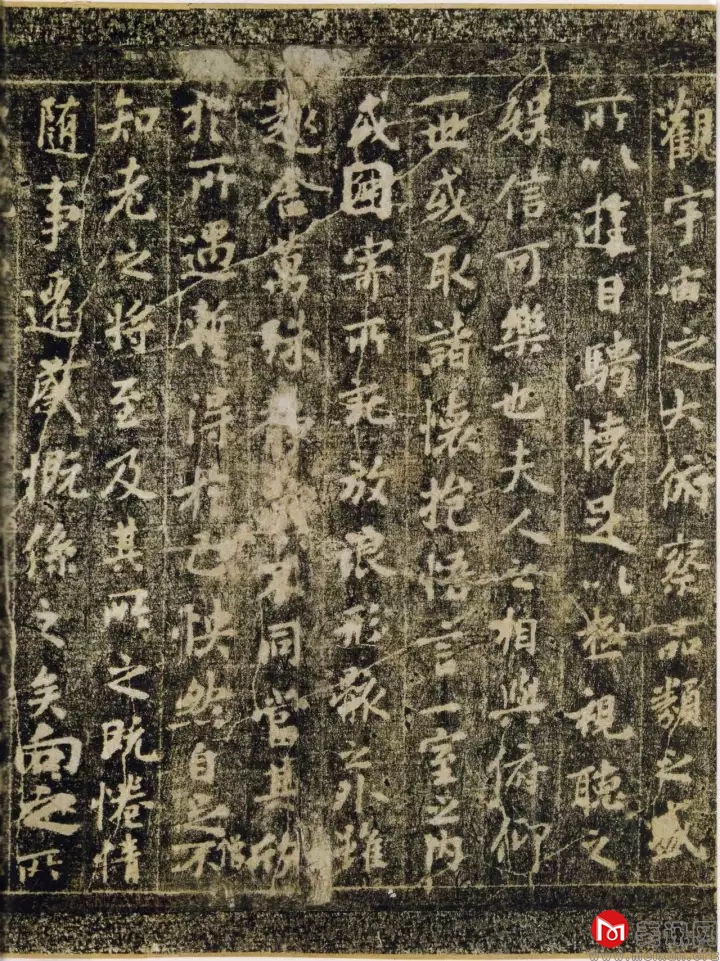 觀宇宙之大俯察品類之盛
所以遊目騁懷足以極視聽之
娛信可樂也夫人之相與俯仰
一世或取諸懷抱悟言一室之內
或因寄所託放浪形骸之外雖
趣舍萬殊不同當其欣
於所遇暫得於己快然自足不
僧
知老之將至及其所之既惓情
隨事遷感慨係之矣向之所